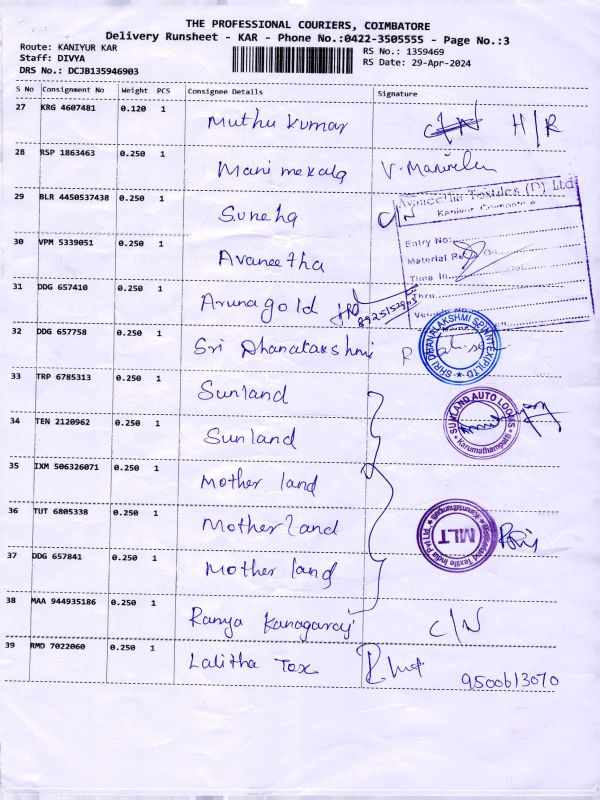 THE PROFESSIONAL COURIERS, COIMBATORE
Delivery Runsheet - KAR - Phone No.:0422-3505555 - Page No.:3
Route: KANIYUR KAR
RS No.: 1359469
Staff: DIVYA
RS Date: 29-Apr-2024
DRS No.: DCJB135946903
S No Consignment No Weight PCS Consignee Details Signature
27 KRG 4607481 0.120 1 Muthu kumar C/N H/R
28 RSP 1863463 0.250 1 Mani mekala
29 BLR 4450537438 0.250 1 Suneha C/N
Avaneetha Textiles (P) Ltd
Kaniyur, Coimbatore
Entry No:
Material
Time In
30 VPM 5339051 0.250 1 Avaneetha
31 DDG 657410 0.250 1 Aruna gold
32 DDG 657758 0.250 1 Sri Dhanalakshmi
SHRI DHANALAKSHMI SPINNTEX (P) LTD
33 TRP 6785313 0.250 1 Sunland
SUNLAND AUTO LOOMS
Karumathampatti
34 TEN 2120962 0.250 1 Sunland
35 IXM 506326071 0.250 1 Mother land
36 TUT 6805338 0.250 1 Mother land
MLT
37 DDG 657841 0.250 1 Mother land
38 MAA 944935186 0.250 1 Ramya Kanagaraj C/N
39 RMD 7022060 0.250 1 Lalitha Tex 9500613070